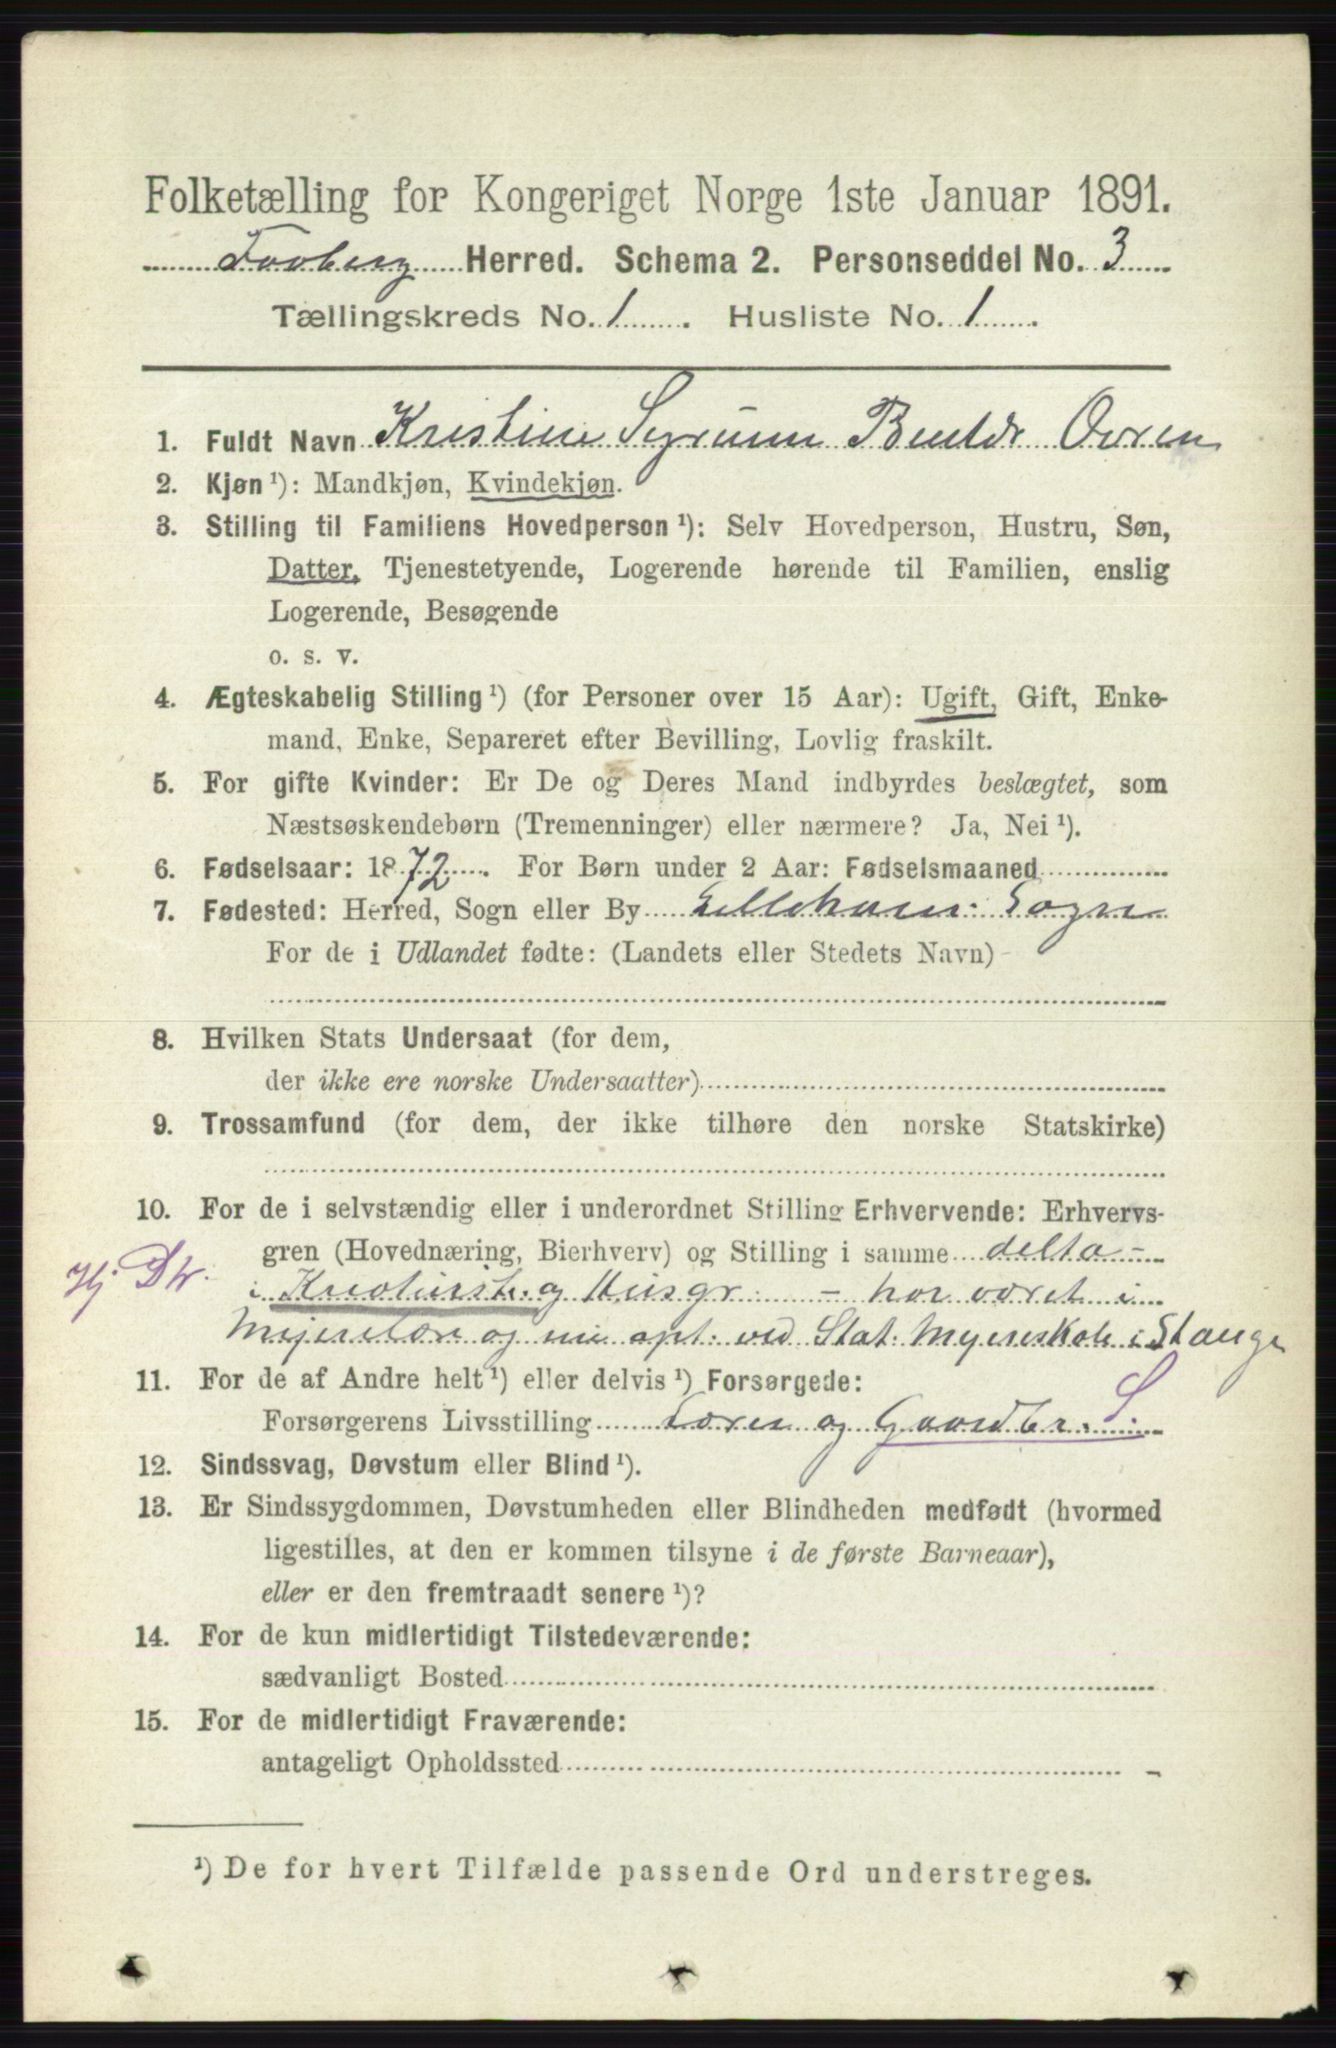 Folketælling for Kongeriget Norge 1ste Januar 1891.
Faaberg Herred. Schema 2. Personseddel No. 3
Tællingskreds No. 1. Husliste No. 1
1. Fuldt Navn Kristine
2. Kjøn ¹): Mandkjøn, Kvindekjøn.
3. Stilling til Familiens Hovedperson ¹): Selv Hovedperson, Hustru, Søn,
Datter, Tjenestetyende, Logerende hørende til Familien, enslig
Logerende, Besøgende
o. s. v.
4. Ægteskabelig Stilling ¹) (for Personer over 15 Aar): Ugift, Gift, Enke-
mand, Enke, Separeret efter Bevilling, Lovlig fraskilt.
5. For gifte Kvinder: Er De og Deres Mand indbyrdes beslægtet, som
Næstsøskendebørn (Tremenninger) eller nærmere? Ja, Nei ¹).
6. Fødselsaar: 1872. For Børn under 2 Aar: Fødselsmaaned
7. Fødested: Herred, Sogn eller By Lilleham: Sogn
For de i Udlandet fødte: (Landets eller Stedets Navn)
8. Hvilken Stats Undersaat (for dem,
der ikke ere norske Undersaatter)
9. Trossamfund (for dem, der ikke tilhøre den norske Statskirke)
10. For de i selvstændig eller i underordnet Stilling Erhvervende: Erhvervs-
gren (Hovednæring, Bierhverv) og Stilling i samme delta-
Hj
i og Husgr: - har været i
og ved Stat: Myereskole i Stange
11. For de af Andre helt ¹) eller delvis ¹) Forsørgede:
Forsørgerens Livsstilling og Gaardbr. S.
12. Sindssvag, Døvstum eller Blind ¹).
13. Er Sindssygdommen, Døvstumheden eller Blindheden medfødt (hvormed
ligestilles, at den er kommen tilsyne i de første Barneaar),
eller er den fremtraadt senere ¹)?
14. For de kun midlertidigt Tilstedeværende:
sædvanligt Bosted
15. For de midlertidigt Fraværende:
antageligt Opholdssted
¹) De for hvert Tilfælde passende Ord understreges.